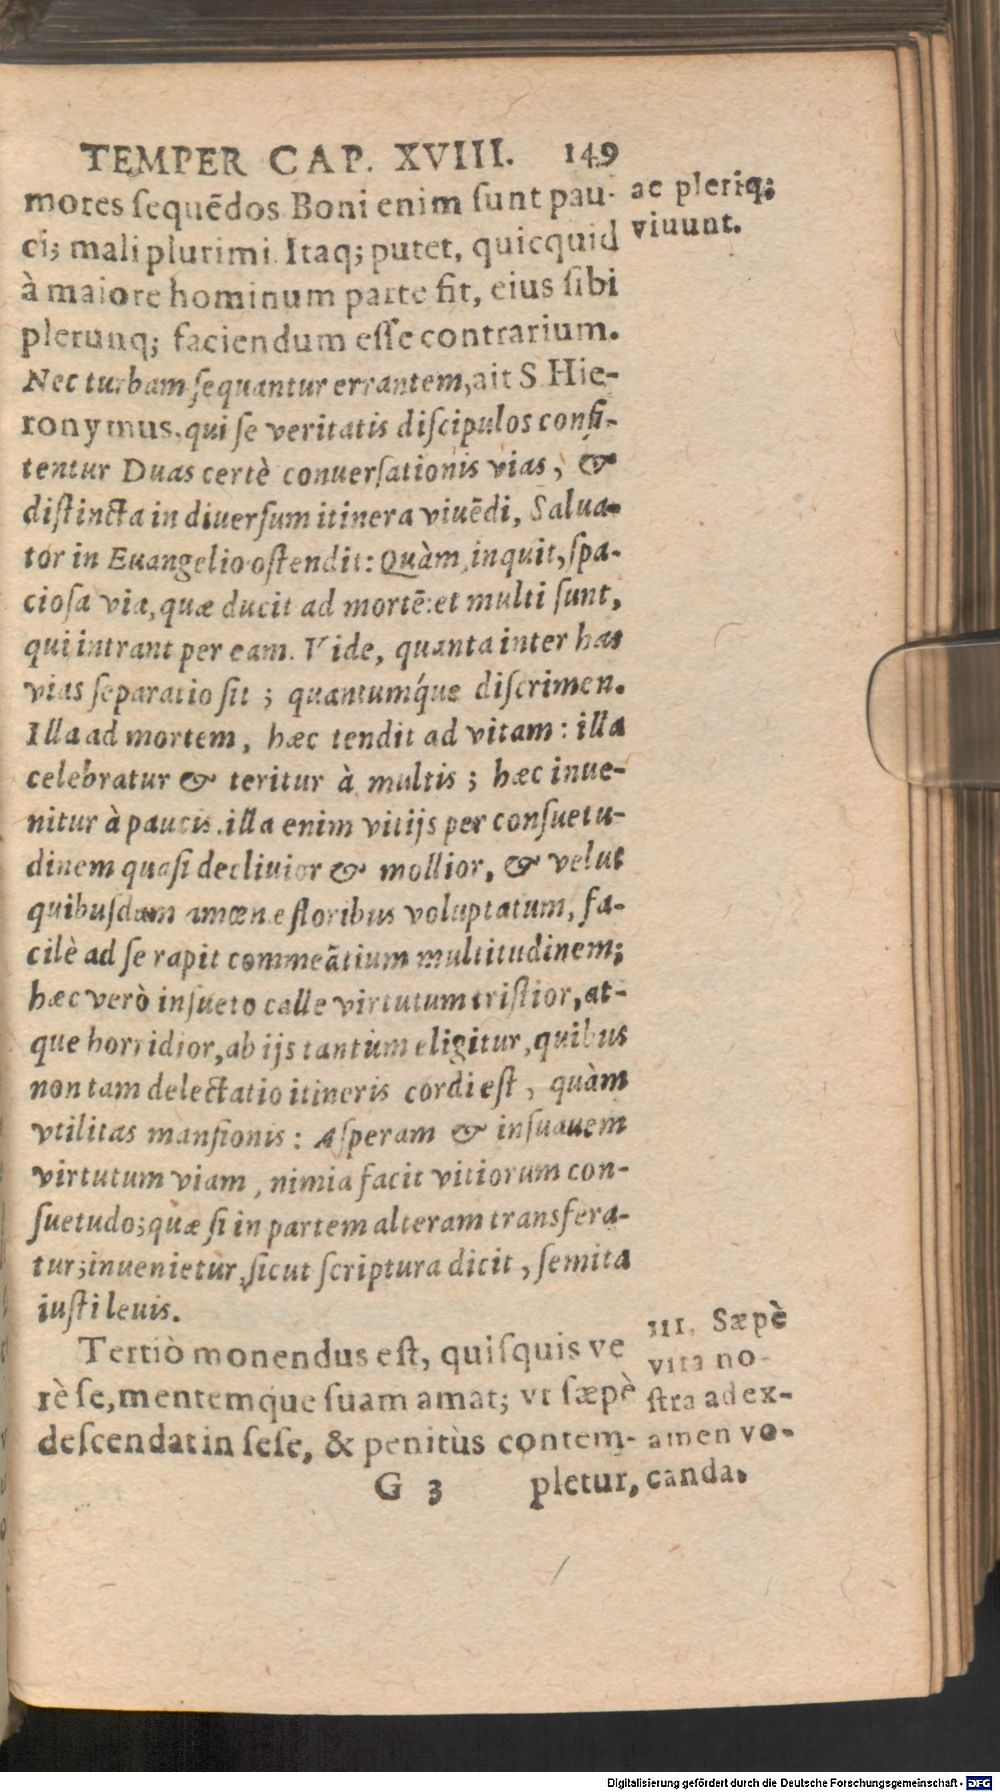 TEMPER CAP. XVIII. 149
mores sequēdos Boni enim sunt pau-
ci; mali plurimi. Itaq; putet, quicquid
à maiore hominum parte fit, eius sibi
plerunq; faciendum esse contrarium.
Nec turbam sequantur errantem, ait S Hie-
ronymus, qui se veritatis discipulos confi-
tentur Duas certè conuersationis vias, &
distincta in diuersum itinera viuēdi, Salua-
tor in Euangelio ostendit: Quàm, inquit, spa-
ciosa via, quæ ducit ad mortē: et multi sunt,
qui intrant per eam. Vide, quanta inter has
vias separatio sit; quantumq́ue discrimen.
Illa ad mortem, hæc tendit ad vitam: illa
celebratur & teritur à multis; hæc inue-
nitur à paucis. illa enim vitijs per consuetu-
dinem quasi decliuior & mollior, & velut
quibusdam amœne floribus voluptatum, fa-
cilè ad se rapit commeātium multitudinem;
hæc verò insueto calle virtutum tristior, at-
que horridior, ab ijs tantùm eligitur, quibus
non tam delectatio itineris cordi est, quàm
vtilitas mansionis: Asperam & insuauem
virtutum viam, nimia facit vitiorum con-
suetudo; quæ si in partem alteram transfera-
tur; inuenietur, sicut scriptura dicit, semita
iusti leuis.
Tertiò monendus est, quisquis ve
rè se, mentemque suam amat; vt sæpè
descendat in sese, & penitùs contem-
G 3 pletur,
ac pleriq;
viuunt.
III. Sæpè
vita no-
stra ad ex-
amen vo-
canda.
Digitalisierung gefördert durch die Deutsche Forschungsgemeinschaft - DFG